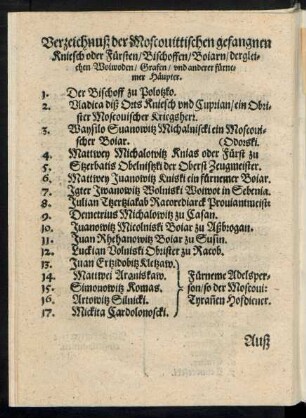 Verzeichnuß der Moscouittischen gefangnen
Kniesch oder Fürsten / Bischoffen / Boiarn / dergleichen Woiwoden / Grafen / vnd anderer fürnemer Häupter.
1. Der Bischoff zu Polotzko.
2. Vladica diß Orts Kniesch vnd Cyprian / ein Obrister Moscouischer Kriegsherr.
3. Waysilo Suanowitz Michalniscki ein Moscouischer Boiar. (Odonski.
4. Mattwey Michalowitz Knias oder Fürst zu
5. Stzerbatis Obelnißki der Oberst Zeugmeister.
6. Mattwey Juanowitz Kniski ein fürnemer Boiar.
7. Igter Jwanowitz Wolniski Woiwot in Sebenia.
8. Julian Tzertziakab Racordiarck Prouiantmeistr
9. Demetrius Michalowitz zu Casan.
10. Juanowitz Micolniski Boiar zu Aßbrogan.
11. Juan Rhehanowitz Boiar zu Susin.
12. Luckian Volniski Obrister zu Racob.
13. Juan Ertzidobitz Kletzaw.
14. Mattwei Araniskaw.
15. Simonowitz Komas.
16. Artowitz Silnicki.
17. Mickita Cardolonoscki.
Fürneme Adelsperson / so der Moscoui:
Tyrañen Hofdiener.
Auß